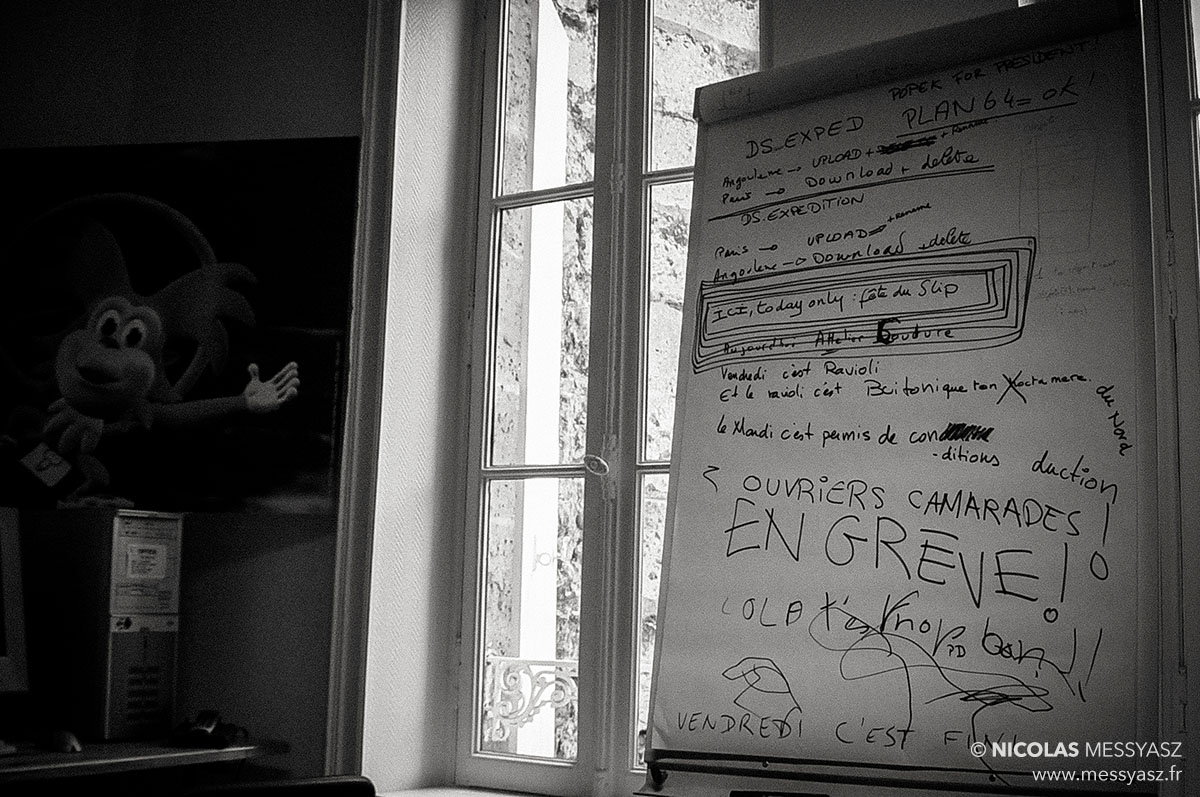 POPEK FOR PRESIDENT!
PLAN 64 = OK!
DS_EXPED
Angouleme → UPLOAD + + Rename
Paris → Download + delete
DS_EXPEDITION
Paris → UPLOAD + rename
Angouleme → Download + delete
ICI, today only : fête du Slip
Aujourd'hui Attelier Couture
Vendredi c'est Ravioli
Et le ravioli c'est Buitonique ton
du Nord
le Mardi c'est permis de con
-ditions duction
OUVRIERS CAMARADES!
EN GREVE!
LOLA t'es trop bon!!
VENDREDI C'EST FINI
© NICOLAS MESSYASZ
www.messyasz.fr